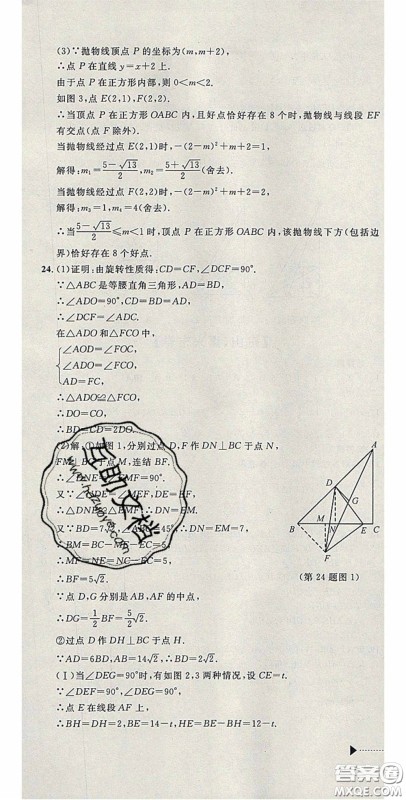 (3)∵抛物线顶点 P 的坐标为(m,m+2),
∴点 P 在直线 y=x+2 上.
由于点 P 在正方形内部,则 0<m<2.
如图 3,点 E(2,1),F(2,2).
∴当顶点 P 在正方形 OABC 内,且好点恰好存在 8 个时,抛物线与线段 EF
有交点(点 F 除外).
当抛物线经过点 E(2,1)时,-(2-m)²+m+2=1,
解得:m₁=(5-√13)/2,m₂=(5+√13)/2(舍去).
当抛物线经过点 F(2,2)时,-(2-m)²+m+2=2,
解得:m₃=1,m₄=4(舍去).
∴当(5-√13)/2≤m<1 时,顶点 P 在正方形 OABC 内,该抛物线下方(包括边
界)恰好存在 8 个好点.
24.(1)证明:由旋转性质得:CD=CF,∠DCF=90°.
∵△ABC 是等腰直角三角形,AD=BD.
∴∠ADO=90°,CD=BD=AD,
∴∠DCF=∠ADC.
在△ADO 和△FCO 中,
∠AOD=∠FOC,
∠ADO=∠FCO,
AD=FC,
∴△ADO≌△FCO,
∴DO=CO,
∴BD=CD=2DO.
(2)解:①如图 1,分别过点 D,F 作 DN⊥BC 于点 N,
FM⊥BC 于点 M,连结 BF.
∴∠DNE=∠EMF=90°.
又∵∠NDE=∠MEF,DE=EF,
∴△DNE≌△EMF,∴DN=EM.
又∵BD=7,∠ABC=45°,∴DN=EM=7,
∴BM=BC-ME-EC=5,
∴MF=NE=NC-EC=5,
∴BF=5√2.
∵点 D,G 分别是 AB,AF 的中点,
∴DG=1/2 BF=5/2 √2.
②过点 D 作 DH⊥BC 于点 H.
∵AD=6BD,AB=14√2,∴BD=2√2.
(Ⅰ)当∠DEG=90°时,有如图 2,3 两种情况,设 CE=t.
∵∠DEF=90°,∠DEG=90°,
∴点 E 在线段 AF 上,
∴BH=DH=2,BE=14-t,HE=BH-BH=12-t.
A
D
G
B
M
N
E
C
F
(第 24 题图 1)
互助文档
www.hezuoye.com
答案圈
MXQE.COM